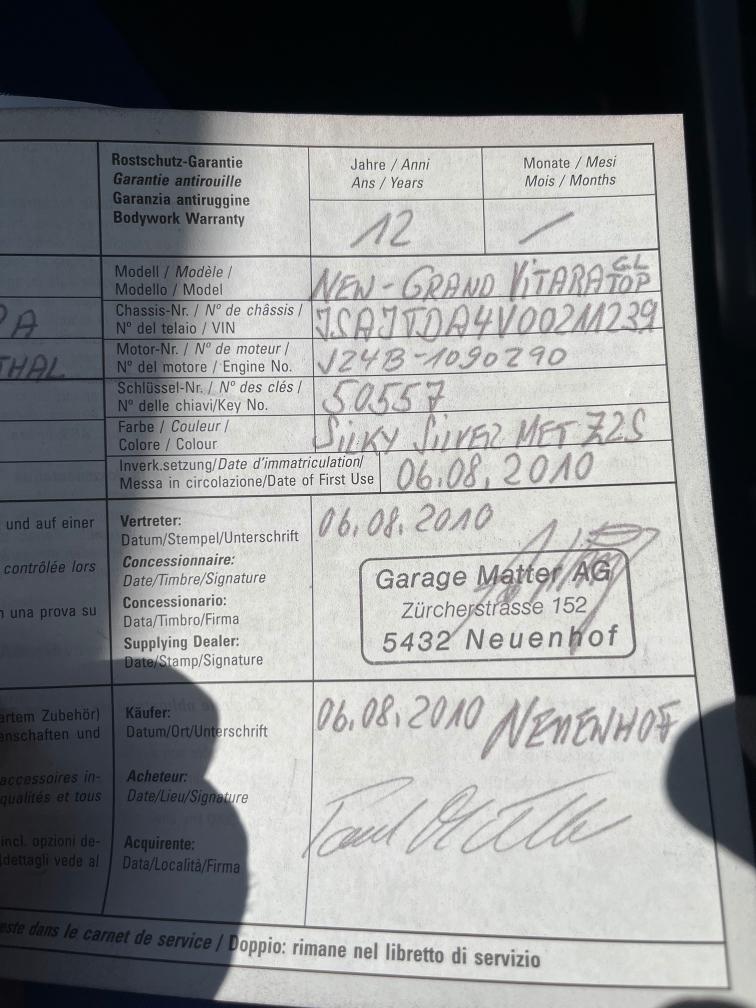 Rostschutz-Garantie
Garantie antirouille
Garanzia antiruggine
Bodywork Warranty
Jahre / Anni
Ans / Years
Monate / Mesi
Mois / Months
12
/
Modell / Modèle /
Modello / Model
NEW-GRAND VITARA GL TOP
Chassis-Nr. / N° de châssis /
N° del telaio / VIN
JSAJTDA4V00211239
Motor-Nr. / N° de moteur /
N° del motore / Engine No.
J24B-1090290
THAL
Schlüssel-Nr. / N° des clés /
N° delle chiavi/Key No.
50557
Farbe / Couleur /
Colore / Colour
SILKY SILVER MET Z2S
Inverk.setzung/Date d'immatriculation/
Messa in circolazione/Date of First Use
06.08.2010
und auf einer
contrôlée lors
una prova su
Vertreter:
Datum/Stempel/Unterschrift
Concessionnaire:
Date/Timbre/Signature
Concessionario:
Data/Timbro/Firma
Supplying Dealer:
Date/Stamp/Signature
06.08.2010
Garage Matter AG
Zürcherstrasse 152
5432 Neuenhof
artem Zubehör)
enschaften und
accessoires in-
qualités et tous
incl. opzioni de-
dettagli vede al
Käufer:
Datum/Ort/Unterschrift
Acheteur:
Date/Lieu/Signature
Acquirente:
Data/Località/Firma
06.08.2010 NEUENHOF
este dans le carnet de service / Doppio: rimane nel libretto di servizio